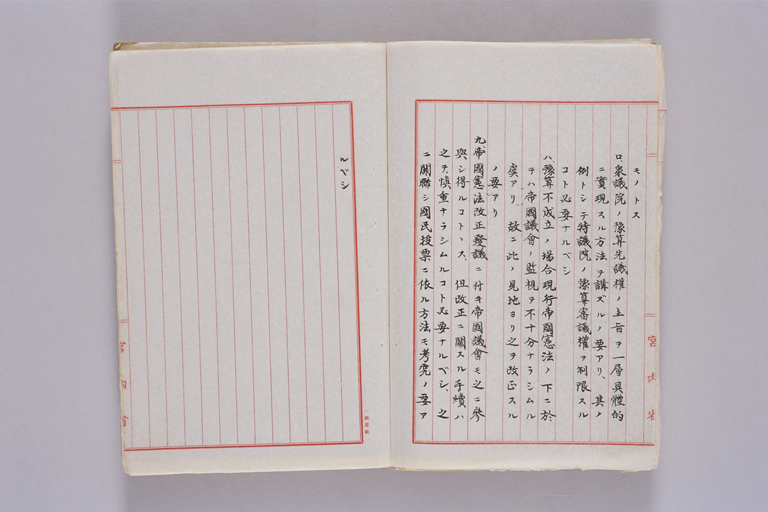 モノトス
ロ衆議院ノ豫算先議權ノ主旨ヲ一層具體的
ニ實現スル方法ヲ講ズルノ要アリ、其ノ
例トシテ特議院ノ豫算審議權ヲ制限スル
コト必要ナルベシ
ハ豫算不成立ノ場合現行帝國憲法ノ下ニ於
テハ帝國議會ノ監視ヲ不十分ナラシムル
虞アリ、故ニ此ノ見地ヨリ之ヲ改正スル
ノ要アリ
九帝國憲法改正發議ニ付キ帝國議會モ之ニ參
與シ得ルコトヽス、但改正ニ關スル手續ハ
之ヲ愼重ナラシムルコト必要ナルベシ、之
ニ關聯シ國民投票ニ依ル方法モ考究ノ要ア
ルベシ
宮内省
宮内省